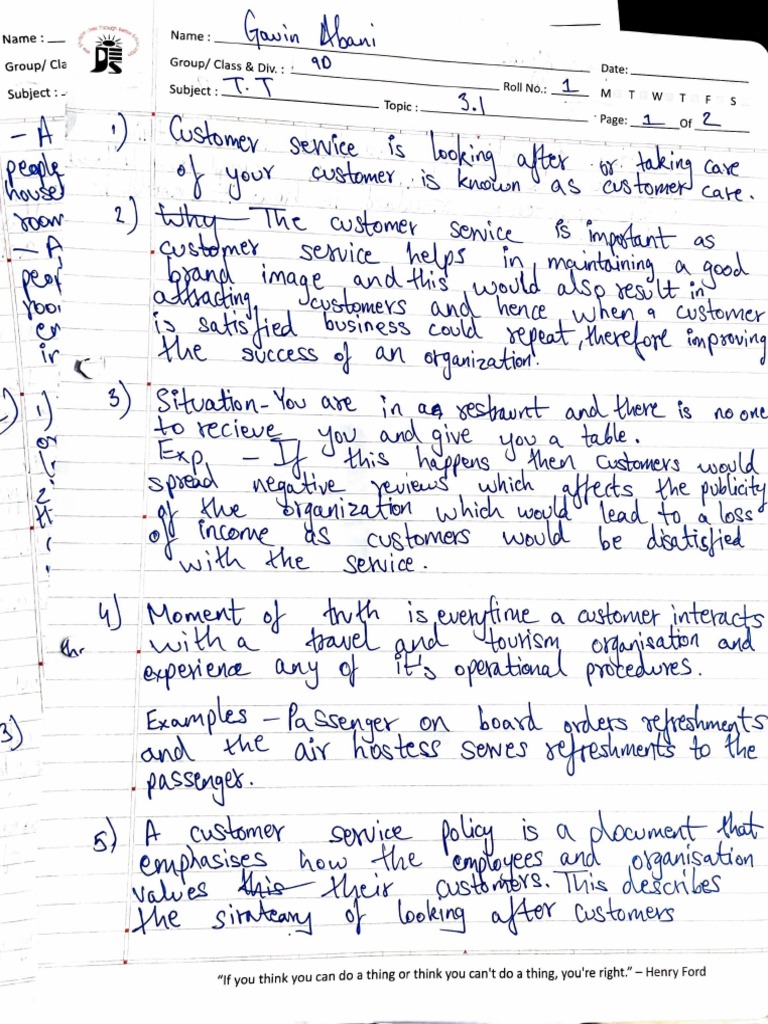 Name :
Group/ Cla
Subject :
Name : Gavin Abani
Group/ Class & Div. : 9D
Roll No.: 1
Subject : T.T
Topic : 3.1
Date:
M T W T F S
Page: 1 Of 2
1) Customer service is looking after or taking care
of your customer is known as customer care.
2) Why The customer service is important as
customer service helps in maintaining a good
brand image and this would also result in
attracting customers and hence when a customer
is satisfied business could repeat, therefore improving
the success of an organization.
3) Situation - You are in a restraunt and there is no one
to recieve you and give you a table.
Exp - If this happens then customers would
spread negative reviews which affects the publicity
of the organization which would lead to a loss
of income as customers would be disatisfied
with the service.
4) Moment of truth is everytime a customer interacts
with a travel and tourism organisation and
experience any of it's operational procedures.
Examples - Passenger on board orders refreshments
and the air hostess serves refreshments to the
passenger.
5) A customer service policy is a document that
emphasises how the employees and organisation
values this their customers. This describes
the of looking after customers
"If you think you can do a thing or think you can't do a thing, you're right." – Henry Ford
- A
people
house
room
- A